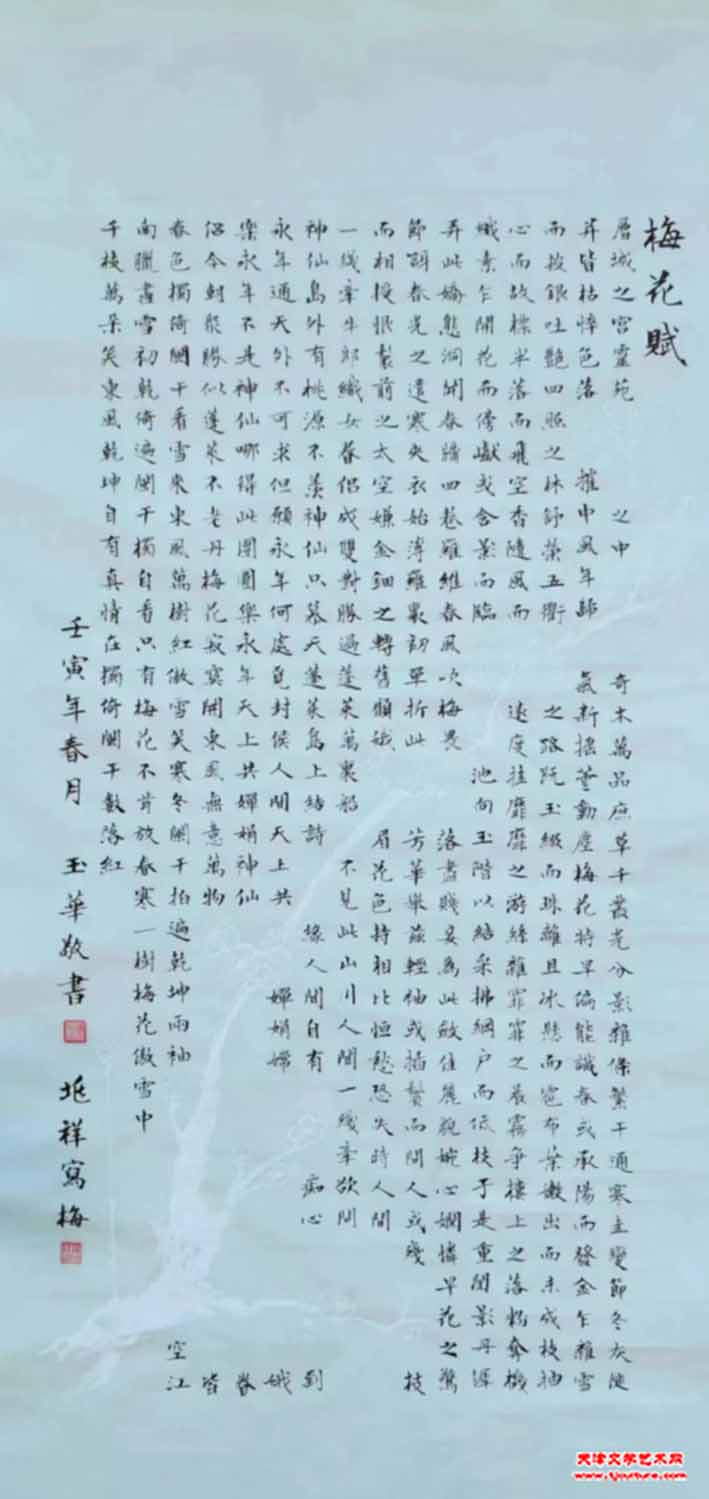 梅花賦
層城之宫靈苑 之中 奇木萬品庶草千叢光分影雜條繁干通寒圭變節冬灰徙
昇皆枯悴色落 摧中風年歸 氣新摇蕓動塵梅花特早偏能識春或承陽而發金乍雜雪
而披銀吐艷四照之林舒榮五衢 之路既玉綴而珠離且冰懸而雹布葉嫩出而未成枝抽
心而故標半落而飛空香隨風而 遠度挂靡靡之游絲雜霏霏之晨霧争樓上之落粉奪機
熾素乍開花而傍巘或含影而臨 池向玉階以結采拂網户而低枝于是重閨影丹墀
弄此嬌態洞開春牖四卷羅維春風吹梅畏 落盡賤妾爲此斂佳麗貌婉心嫻憐早花之驚
節訝春光之遣寒夹衣始薄羅裏初單折此 芳華舉兹輕袖或插鬢而問人或殘 枝
而相授恨鬓前之太空嫌金鈿之轉舊顧娥 眉花色持相比恒愁恐失時人間
一綫牽牛郎織女眷侣成雙對勝過蓬萊萬裏船 不見此山川人間一綫牽欲問
神仙島外有桃源不羨神仙只慕天蓬萊島上結詩 緣人間自有 痴心 到
永年通天外不可求但願永年何處覓封侯人間天上共 嬋娟嫦 娥
樂永年不是神仙哪得此團圓樂永年天上共嬋娟神仙 眷
侣今朝聚勝似蓬萊不老丹梅花寂寞開東風無意萬物 皆
春色獨倚闌干看雪來東風萬樹紅傲雪笑寒冬闌干拍遍乾坤兩袖 空江
南臘盡雪初乾倚遍闌干獨自看只有梅花不肯放春寒一樹梅花傲雪中
千枝萬朵笑東風乾坤自有真情在獨倚闌干數落紅
壬寅年春月 玉華敬書 兆祥寫梅
天津文学艺术网
www.tjculture.com